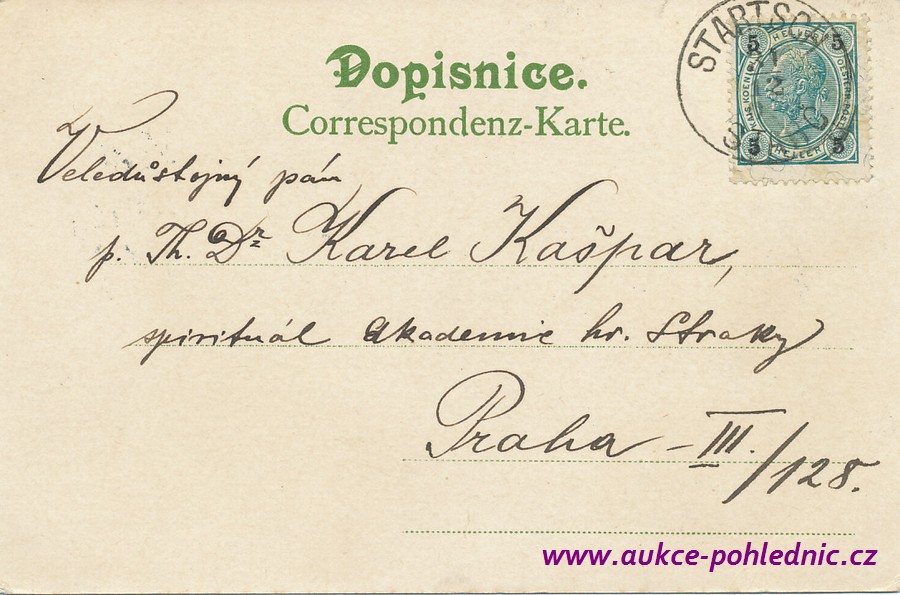 Dopisnice.
Correspondenz-Karte.
STARTSCH
5 HELLER 5
5 HELLER 5
Veledůstojný pán
p. Th. Dr Karel Kašpar,
spirituál akademie hr. Straky
Praha - III./128.
www.aukce-pohlednic.cz